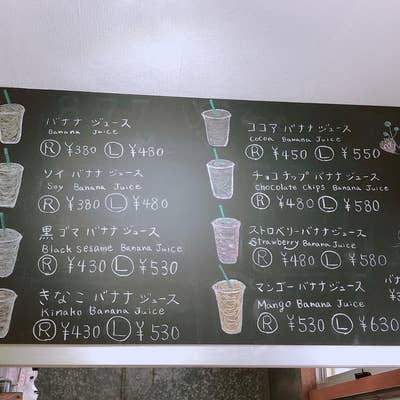 バナナ ジュース
Banana Juice
Ⓡ ¥380 Ⓛ ¥480
ソイ バナナ ジュース
Soy Banana Juice
Ⓡ ¥380 Ⓛ ¥480
黒ゴマ バナナ ジュース
Black Sesame Banana Juice
Ⓡ ¥430 Ⓛ ¥530
きなこ バナナ ジュース
Kinako Banana Juice
Ⓡ ¥430 Ⓛ ¥530
ココア バナナ ジュース
Cocoa Banana Juice
Ⓡ ¥450 Ⓛ ¥550
チョコチップ バナナ ジュース
chocolate chips Banana Juice
Ⓡ ¥480 Ⓛ ¥580
ストロベリーバナナ ジュース
Strawberry Banana Juice
Ⓡ ¥480 Ⓛ ¥580
マンゴー バナナ ジュース
Mango Banana Juice
Ⓡ ¥530 Ⓛ ¥630